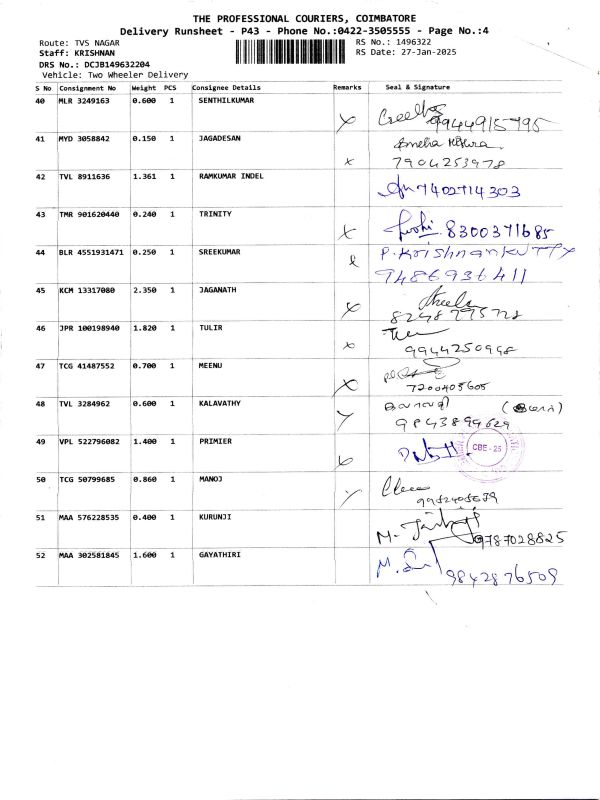 THE PROFESSIONAL COURIERS, COIMBATORE
Delivery Runsheet - P43 - Phone No.:0422-3505555 - Page No.:4
Route: TVS NAGAR
Staff: KRISHNAN
DRS No.: DCJB149632204
Vehicle: Two Wheeler Delivery
RS No.: 1496322
RS Date: 27-Jan-2025
S No Consignment No Weight PCS Consignee Details Remarks Seal & Signature
40 MLR 3249163 0.600 1 SENTHILKUMAR
9944915795
41 MYD 3058842 0.150 1 JAGADESAN
7904253978
42 TVL 8911636 1.361 1 RAMKUMAR INDEL 7402714303
43 TMR 901620440 0.240 1 TRINITY 8300371685
44 BLR 4551931471 0.250 1 SREEKUMAR P.KRISHNANKUTTY
9486936411
45 KCM 13317080 2.350 1 JAGANATH
46 JPR 100198940 1.820 1 TULIR
9944250948
47 TCG 41487552 0.700 1 MEENU
7200405605
48 TVL 3284962 0.600 1 KALAVATHY
9843899629
49 VPL 522796082 1.400 1 PRIMIER CBE - 25
50 TCG 50799685 0.860 1 MANOJ
51 MAA 576228535 0.400 1 KURUNJI
9787028825
52 MAA 302581845 1.600 1 GAYATHIRI
9842876509